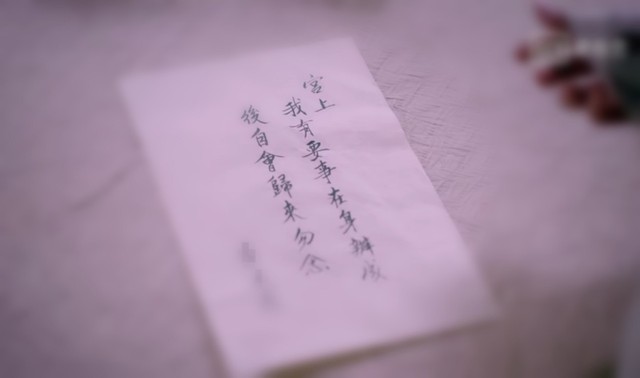 宮上
我有要事在身辦成
後自會歸來勿念